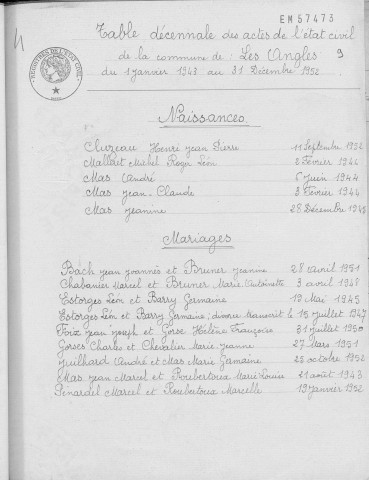 EM57473
4
Table décennale des actes de l'état civil
de la commune de : Les Angles 9
du 1 janvier 1943 au 31 Décembre 1952
Naissances
Cluzeau Henri Jean Pierre 11 Septembre 1952
Mallaret Michel Roger Léon 2 Février 1944
Mas André 5 juin 1944
Mas Jean-Claude 3 Février 1944
Mas Jeanine 28 Décembre 1949
Mariages
Bach jean joannès et Bruner jeanine 28 avril 1951
Chabanier Marcel et Bruner Marie Antoinette 3 avril 1948
Estorges Léon et Barry Germaine 19 Mai 1945
Estorges Léon et Barry Germaine, divorce transcrit le 15 juillet 1947
Foix jean joseph et Gorse Hélène Françoise 31 juillet 1950
Gorses Charles et Chevalier Marie jeanne 27 Mars 1951
Juilhard André et Mas Marie Germaine 25 octobre 1952
Mas jean Marcel et Poubertoux Marie Louise 21 août 1943
Penardel Marcel et Poubertoux Marcelle 19 janvier 1952